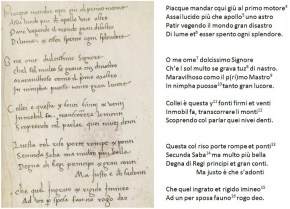 Piacque mandar qui giu al primo motore
Assai lucido piu che apollo un astro
Patir vegendo il mondo gran disastro
Di lume et esser spento ogni splendore
O me ome dulcissimo Signore
Che sol molto se grava
Maraviglioso come il
In nimpha
Collei e questa y fonti firmi et venti
Immobil fa, transcorrere i monti
Soprendo col parlar quei nivei denti
Questa col riso porte rompe et ponti
Secunda Saba ma multo piu bella
Degna di Regi principi et gran conti
Ma justo e
Che quel ingrato et rigido imineo
Ad un per sposa fano rogo deo
Piacque mandar qui giù al primo motore⁶
Assai lucido più che apollo⁷ uno astro
Patir vegendo il mondo gran disastro
Di lume et⁸ esser spento ogni splendore.
O me ome’ dolcissimo Signore
Ch’e l sol multo se grava tuo⁹ di nastro
Maravilhoso come il p(ri)mo Mastro⁹
In nimpha puosse¹⁰ tanto gran lucore.
Collei è questa y¹¹ fonti firmi et venti
Immobil fa, transcorrere li monti¹²
Soprendo col parlar quei nivei denti.
Questa col riso porte rompe et ponti¹³
Secunda Saba¹⁴ ma multo più bella
Degna di Regi principi et gran conti,
Ma justo è ch’s’adonti
Che quel ingrato et rigido imineo¹⁵
Ad un per sposa fano¹⁶ rogo deo.